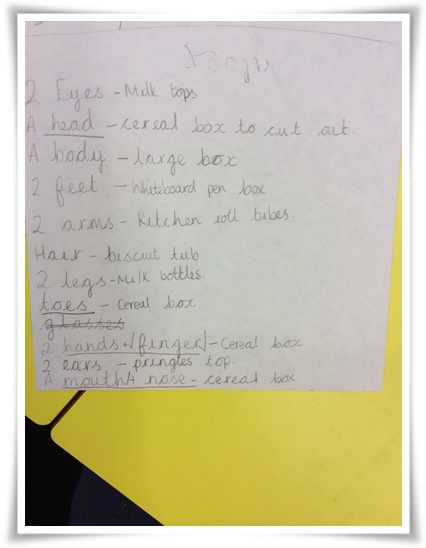 2 Eyes - Milk tops
A head - cereal box to cut out.
A body - large box
2 feet - Whiteboard pen box
2 arms - Kitchen roll tubes.
Hair - biscuit tub
2 legs - Milk bottles.
toes - Cereal box
glasses
2 hands + (finger) - Cereal box
2 ears - pringles top.
A mouth + nose - cereal box